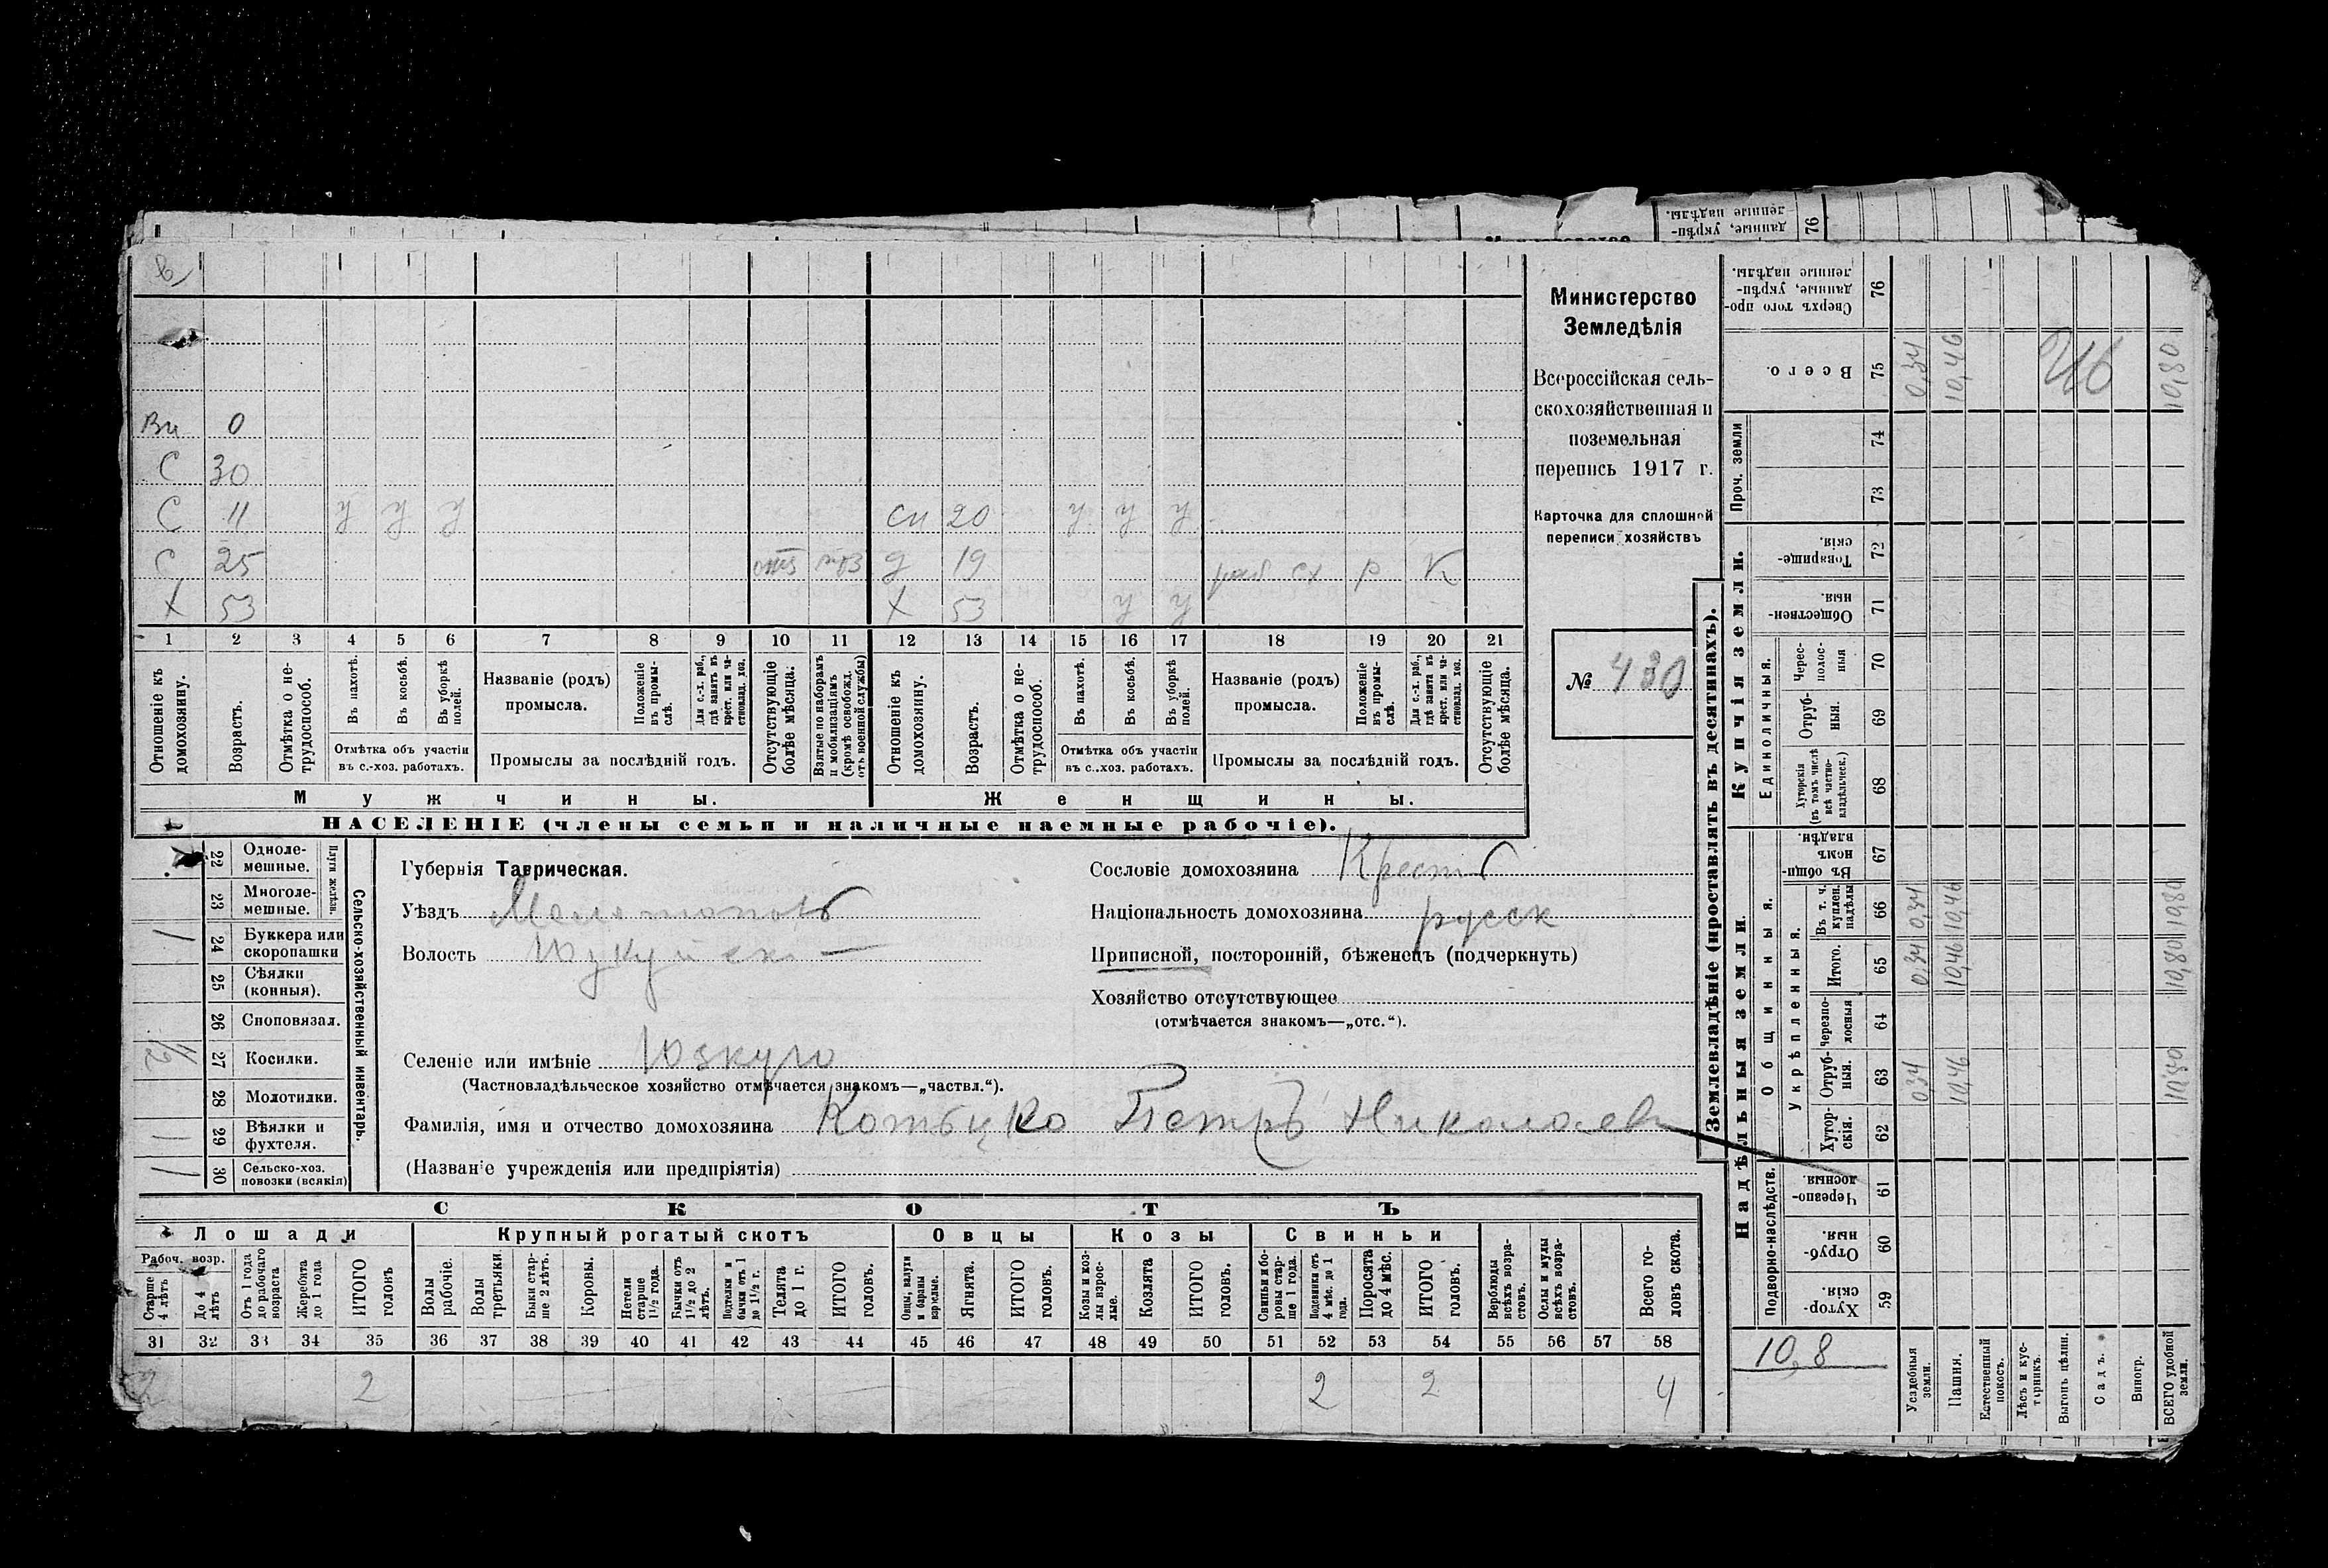 Министерство
Земледѣлія
Всероссійская сель-
скохозяйственная и
поземельная
перепись 1917 г.
Карточка для сплошной
переписи хозяйствъ
№ 430
Ви 0
С 30
С 11 у у у сн 20 у у у
С 25 отс моб д 19 раб сх р К
Х 53 Х 53 у у
1 2 3 4 5 6 7 8 9 10 11 12 13 14 15 16 17 18 19 20 21
Отношеніе къ домохозяину.
Возрастъ.
Отмѣтка о не-трудоспособ.
Въ пахотѣ.
Въ косьбѣ.
Въ уборкѣ полей.
Отмѣтка объ участіи въ с.-хоз. работахъ.
Названіе (родъ) промысла.
Положеніе въ промы-слѣ.
Для с.-х. раб., гдѣ занятъ въ крест. или ча-стновлад. хоз.
Промыслы за послѣдній годъ.
Отсутствующіе болѣе мѣсяца.
Взятые по наборамъ и мобилизаціямъ (кромѣ освобожд. отъ военной службы)
Отношеніе къ домохозяину.
Возрастъ.
Отмѣтка о не-трудоспособ.
Въ пахотѣ.
Въ косьбѣ.
Въ уборкѣ полей.
Отмѣтка объ участіи въ с.-хоз. работахъ.
Названіе (родъ) промысла.
Положеніе въ промы-слѣ.
Для с.-х. раб., гдѣ занята въ крест. или ча-стновлад. хоз.
Промыслы за послѣдній годъ.
Отсутствующіе болѣе мѣсяца.
Мужчины. Женщины.
НАСЕЛЕНІЕ (члены семьи и наличные наемные рабочіе).
Сельско-хозяйственный инвентарь.
Плуги желѣзн.
22 Одноле-мешные.
23 Многоле-мешные.
1 24 Буккера или скоропашки
25 Сѣялки (конныя).
26 Сноповязал.
1/2 27 Косилки.
28 Молотилки.
1 29 Вѣялки и фухтеля.
1 30 Сельско-хоз. повозки (всякія)
Губернія Таврическая.
Уѣздъ Мелитополь
Волость Юзкуйск
Селеніе или имѣніе Юзкую
(Частновладѣльческое хозяйство отмѣчается знакомъ—„частвл.“).
Фамилія, имя и отчество домохозяина Котбцко Петръ Николаев
(Названіе учрежденія или предпріятія)
Сословіе домохозяина Крест
Національность домохозяина русск
Приписной, посторонній, бѣженецъ (подчеркнуть)
Хозяйство отсутствующее
(отмѣчается знакомъ—„отс.“).
СКОТЪ
Лошади Крупный рогатый скотъ Овцы Козы Свиньи
Рабоч. возр.
Старше 4 лѣтъ
До 4 лѣтъ
Отъ 1 года до рабочаго возраста
Жеребята до 1 года
ИТОГО головъ
Волы рабочіе.
Волы третьяки.
Быки стар-ше 2 лѣтъ.
Коровы.
Нетели старше 1½ года.
Бычки отъ 1½ до 2 лѣтъ.
Подтелки и бычки отъ 1 до 1½ г.
Телята до 1 г.
ИТОГО головъ.
Овцы, валухи и бараны взрослые.
Ягнята.
ИТОГО головъ.
Козы и коз-лы взрос-лые.
Козлята
ИТОГО головъ.
Свиньи и бо-ровы стар-ше 1 года.
Подсвинки отъ 4 мѣс. до 1 года.
Поросята до 4 мѣс.
ИТОГО головъ.
Верблюды всѣхъ возра-стовъ.
Ослы и мулы всѣхъ возра-стовъ.
Всего го-ловъ скота.
31 32 33 34 35 36 37 38 39 40 41 42 43 44 45 46 47 48 49 50 51 52 53 54 55 56 57 58
2 2 2 2 4
Землевладѣніе (проставлять въ десятинахъ).
Надѣльныя земли. Купчія земли. Проч. земли
Подворно-наслѣдств. Общинныя. Единоличныя.
Укрѣпленныя.
59 Хутор-скія.
60 Отруб-ныя.
61 Черезпо-лосныя.
62 Хутор-скія.
63 Отруб-ныя. 0,34 10,46 10,80
64 черезпо-лосныя
65 Итого. 0,34 10,46 10,80
66 Въ т. ч. куплен. надѣлы 0,34 10,46 10,80
67 Въ общин-номъ владѣн.
68 Хуторскія (въ томъ числѣ всѣ частно-владѣльческ.)
69 Отруб-ныя.
70 Черес-полос-ныя
71 Обществен-ныя.
72 Товарище-скія.
73
74
75 Всего. 0,34 10,46 10,80
76 Сверхъ того про-данные, укрѣп-ленные надѣлы.
10,8
Усадебныя земли.
Пашня.
Естественный покосъ.
Лѣсъ и кус-тарникъ.
Выгонъ цѣлин.
Садъ.
Виногр.
ВСЕГО удобной земли.